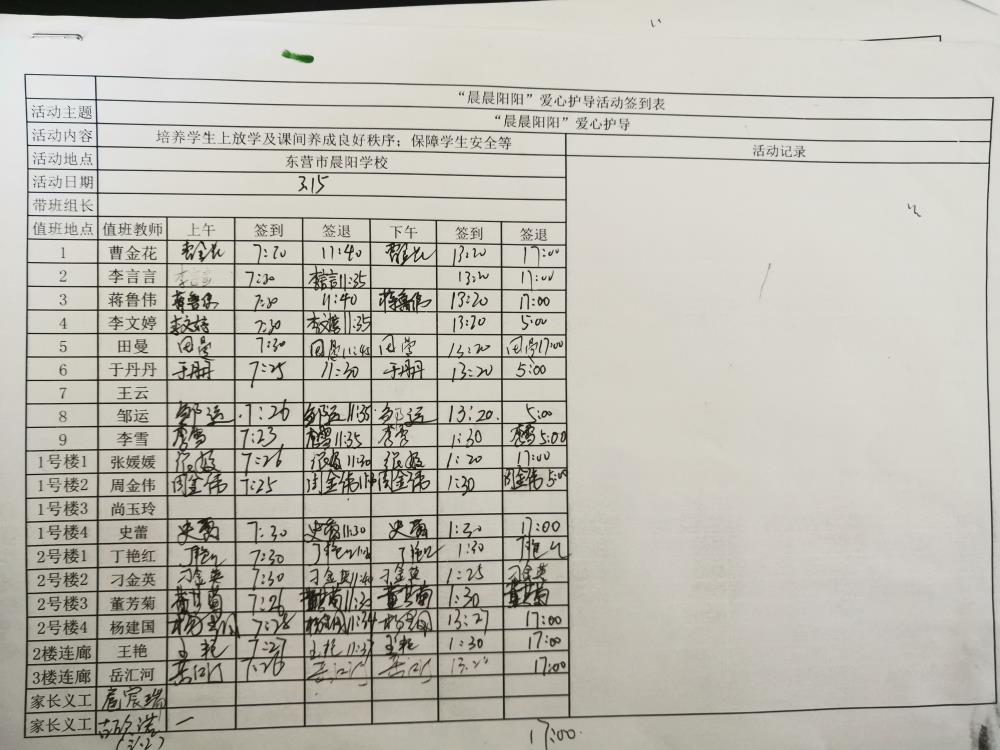 “晨晨阳阳”爱心护导活动签到表
活动主题 “晨晨阳阳”爱心护导
活动内容 培养学生上放学及课间养成良好秩序；保障学生安全等 活动记录
活动地点 东营市晨阳学校
活动日期 3.15
带班组长
值班地点 值班教师 上午 签到 签退 下午 签到 签退
1 曹金花 曹金花 7:20 11:40 曹金花 13:20 17:00
2 李言言 李言言 7:30 李言言 11:35 13:20 17:00
3 蒋鲁伟 蒋鲁伟 7:30 11:40 蒋鲁伟 13:20 17:00
4 李文婷 李文婷 7:30 李文婷 11:35 13:20 5:00
5 田曼 田曼 7:30 田曼 11:45 田曼 13:20 田曼 17:00
6 于丹丹 于丹丹 7:25 11:30 于丹丹 13:20 5:00
7 王云
8 邹运 邹运 7:26 邹运 11:35 邹运 13:20 5:00
9 李雪 李雪 7:23 李雪 11:35 李雪 1:30 李雪 5:00
1号楼1 张媛媛 张媛 7:26 张媛 11:30 张媛 1:20 17:00
1号楼2 周金伟 周金伟 7:25 周金伟 周金伟 1:30 周金伟 5:00
1号楼3 尚玉玲
1号楼4 史蕾 史蕾 7:30 史蕾 11:30 史蕾 1:30 17:00
2号楼1 丁艳红 丁艳红 7:30 丁艳红 丁艳红 1:30 丁艳红
2号楼2 刁金英 刁金英 7:30 刁金英 11:40 刁金英 1:25 刁金英
2号楼3 董芳菊 董芳菊 7:26 董芳菊 11:30 董芳菊 1:30 董芳菊
2号楼4 杨建国 杨建国 7:28 杨建国 11:34 杨建国 13:27 17:00
2楼连廊 王艳 王艳 7:27 王艳 11:37 王艳 1:30 17:00
3楼连廊 岳汇河 岳汇河 7:26 岳汇河 岳汇河 13:20 17:00
家长义工
家长义工
17:00